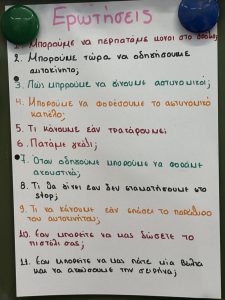 Ερωτήσεις
1. Μπορούμε να περπατάμε μόνοι στο δρόμο;
2. Μπορούμε τώρα να οδηγήσουμε
αυτοκίνητο;
3. Πώς μπορούμε να γίνουμε αστυνομικοί;
4. Μπορούμε να φορέσουμε το αστυνομικό
καπέλο;
5. Τι κάνουμε εάν τρακάρουμε;
6. Πατάμε γκάζι;
7. Όταν οδηγούμε μπορούμε να φοράμε
ακουστικά;
8. Τι θα γίνει εαν δεν σταματήσουμε στο
stop;
9. Τι να κάνουμε εάν σπάσει το παράθυρο
του αυτοκινήτου;
10. Εάν μπορείτε να μας δώσετε το
πιστόλι σας;
11. Εάν μπορείτε να μας πάτε μία βόλτα
και να ακούσουμε την σειρήνα;